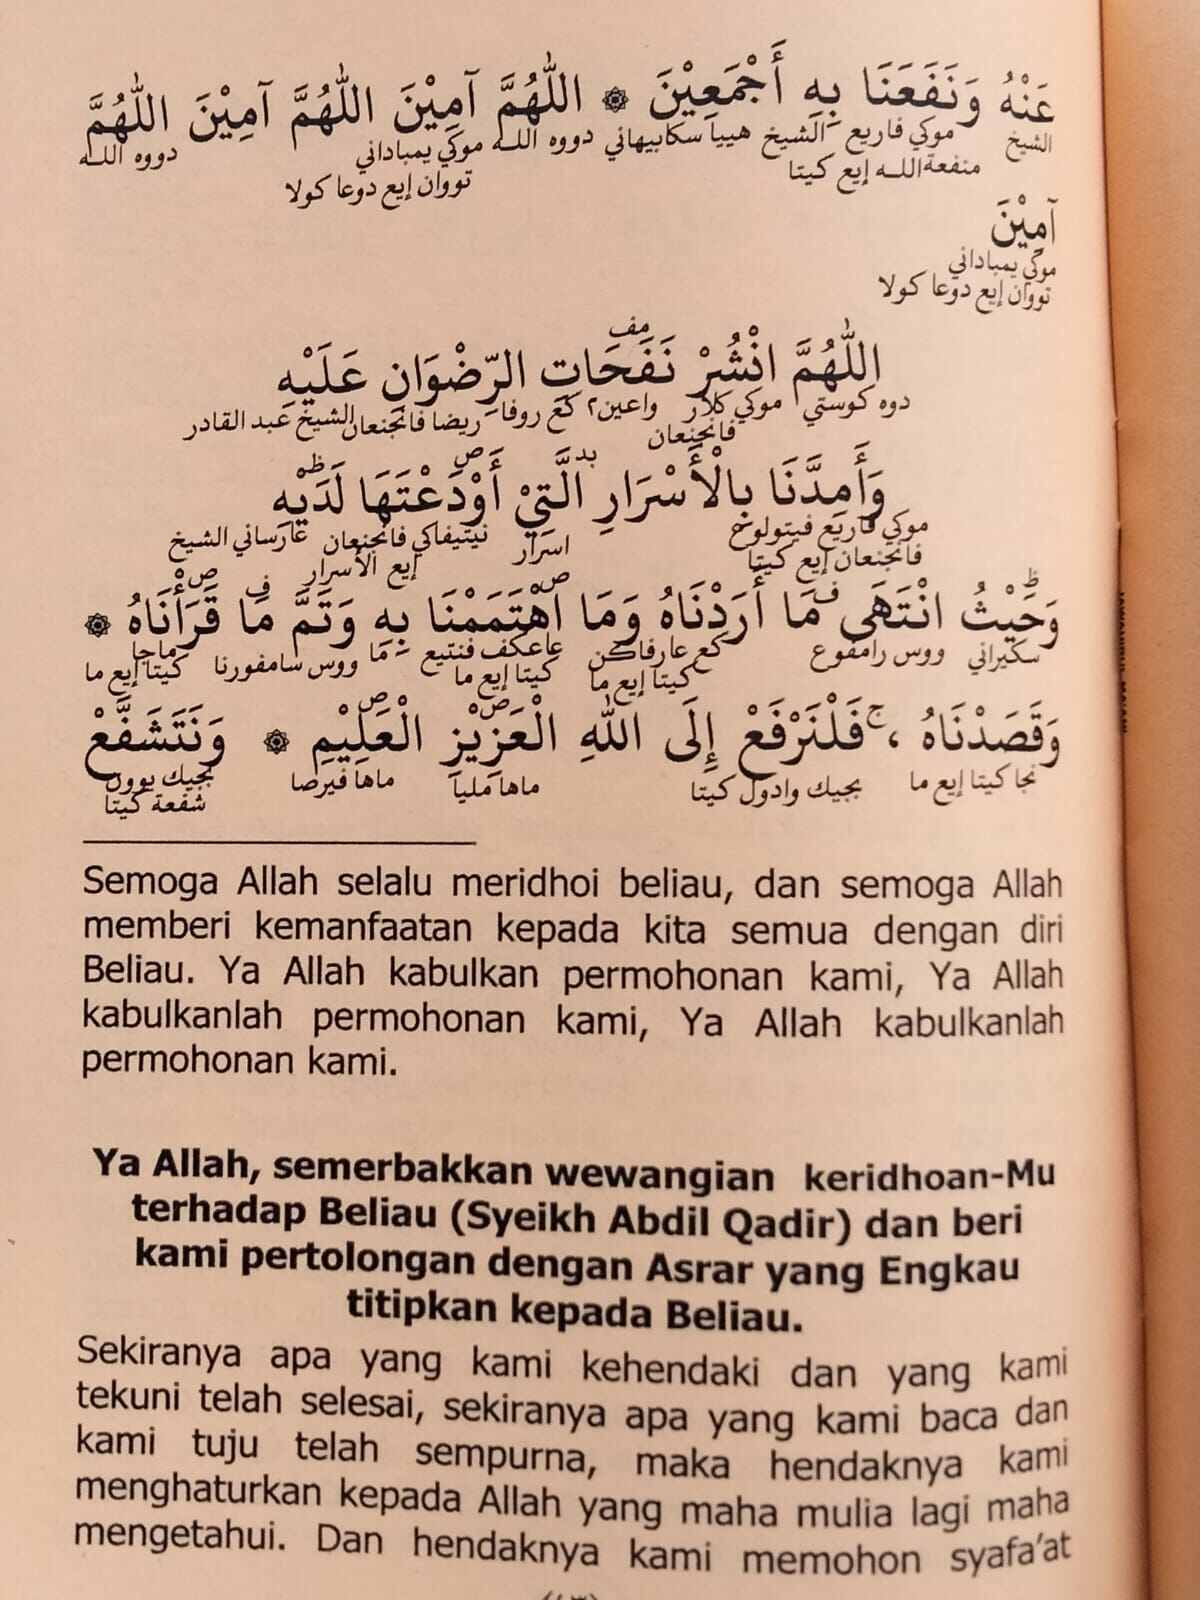 عَنْهُ وَنَفَعَنَا بِهِ أَجْمَعِيْنَ ۞ اللّٰهُمَّ آمِيْنَ اللّٰهُمَّ آمِيْنَ اللّٰهُمَّ
الشيخ موكي فاريع الشيخ هييا سكابيهاني دووه الله موكي يمباداني دووه الله
منفعة الله إيع كيتا تووان إيع دوعا كولا
آمِيْنَ
موكي يمباداني
تووان إيع دوعا كولا
مف
اللّٰهُمَّ انْشُرْ نَفَحَاتِ الرِّضْوَانِ عَلَيْهِ
دوه كوستي موكي كلار واعين٢ كع روفا ريضا فانجنعان الشيخ عبد القادر
فانجنعان
بد ص ظ
وَأَمِدَّنَا بِالْأَسْرَارِ الَّتِيْ أَوْدَعْتَهَا لَدَيْهِ
موكي فاريع فيتولوع اسرار نيتيفاكي فانجنعان عارساني الشيخ
فانجنعان إيع كيتا إيع الأسرار
ظ ف ص ف ص
وَحَيْثُ انْتَهَى مَا أَرَدْنَاهُ وَمَا اهْتَمَمْنَا بِهِ وَتَمَّ مَا قَرَأْنَاهُ ۞
سكيراني ووس رامفوع كع عارفاكن عاعكف فنتيع ما ووس سامفورنا ماجا
كيتا إيع ما كيتا إيع ما كيتا إيع ما
ج ص ص
وَقَصَدْنَاهُ ، فَلْنَرْفَعْ إِلَى اللهِ الْعَزِيْزِ الْعَلِيْمِ ۞ وَنَتَشَفَّعْ
نجا كيتا إيع ما بجيك وادول كيتا ماها مليا ماها فيرصا بجيك يوون
شفعة كيتا
Semoga Allah selalu meridhoi beliau, dan semoga Allah
memberi kemanfaatan kepada kita semua dengan diri
Beliau. Ya Allah kabulkan permohonan kami, Ya Allah
kabulkanlah permohonan kami, Ya Allah kabulkanlah
permohonan kami.
Ya Allah, semerbakkan wewangian keridhoan-Mu
terhadap Beliau (Syeikh Abdil Qadir) dan beri
kami pertolongan dengan Asrar yang Engkau
titipkan kepada Beliau.
Sekiranya apa yang kami kehendaki dan yang kami
tekuni telah selesai, sekiranya apa yang kami baca dan
kami tuju telah sempurna, maka hendaknya kami
menghaturkan kepada Allah yang maha mulia lagi maha
mengetahui. Dan hendaknya kami memohon syafa'at